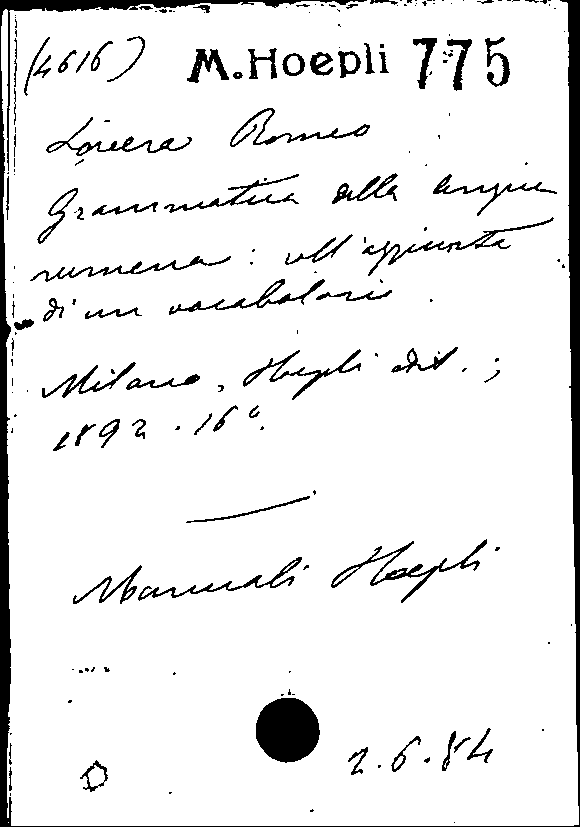 (4616) M. Hoepli 775
Lovera Romeo
Grammatica della lingua
rumena: coll'aggiunta
di un vocabolario.
Milano, Hoepli edit.;
1892. 16°.
Manuali Hoepli
2.6.84